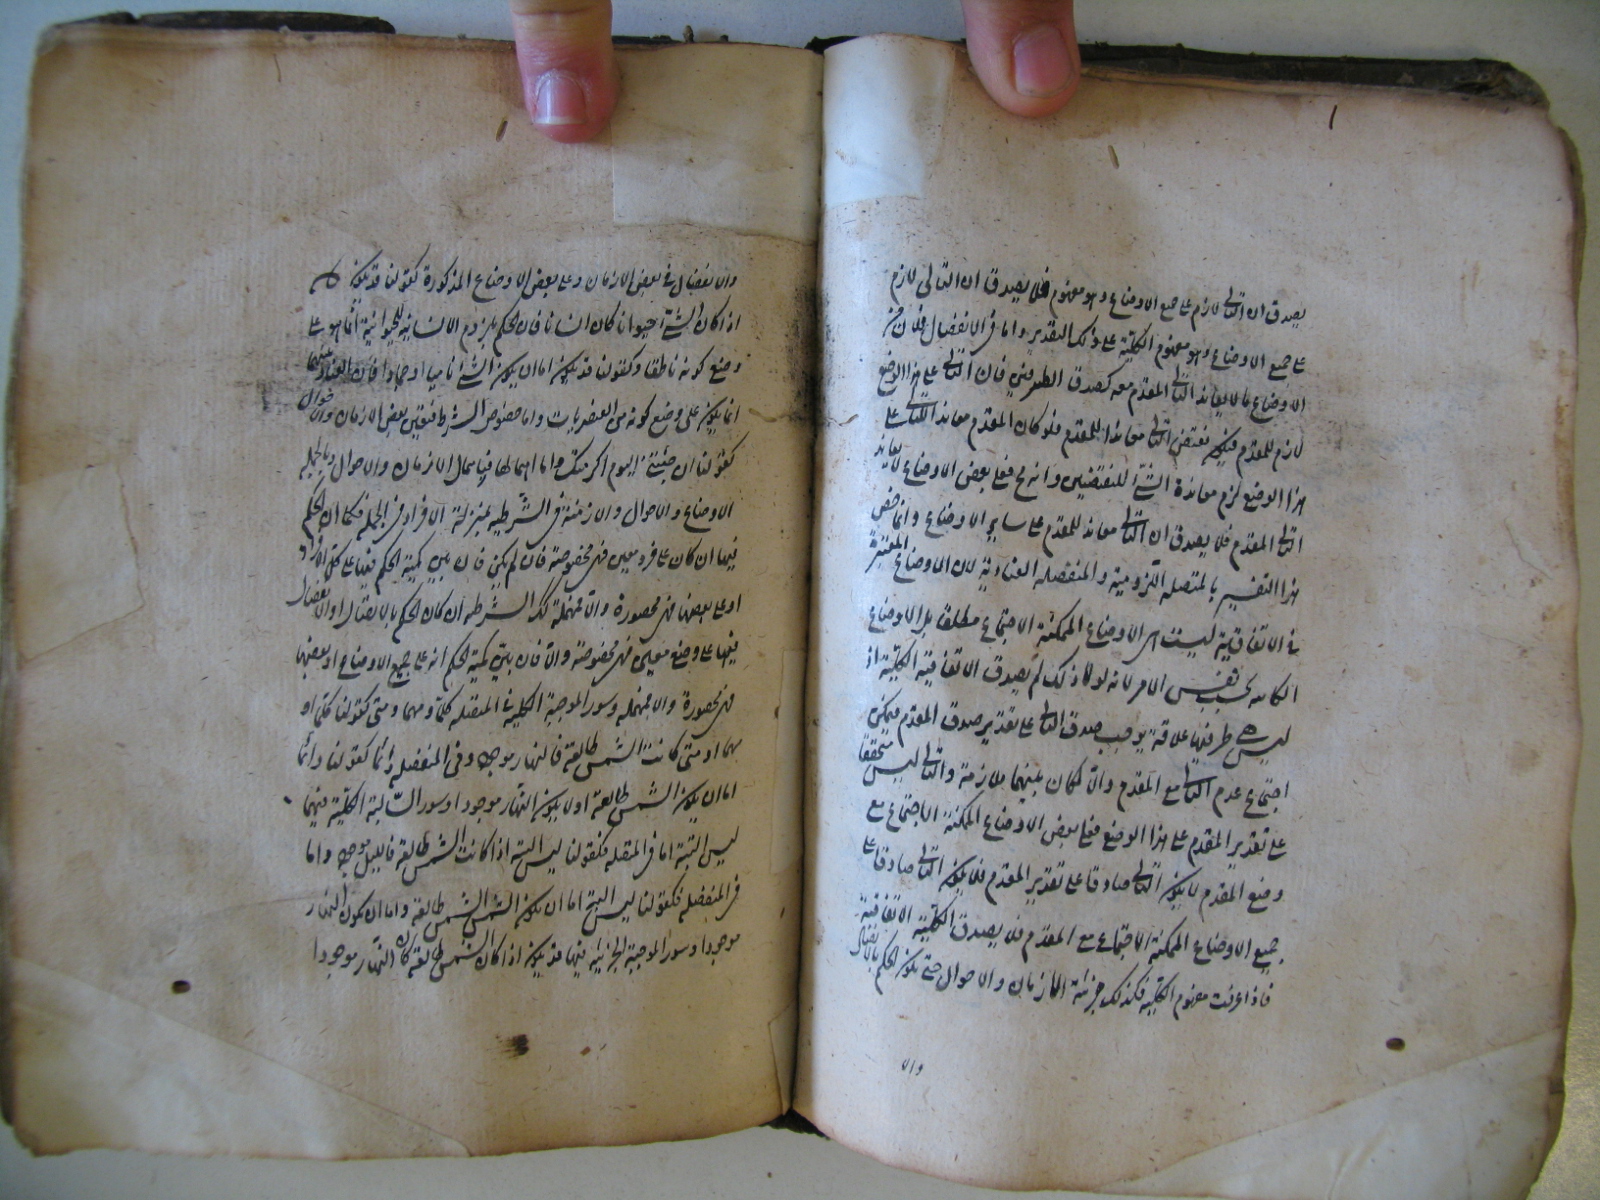 يصدق ان التالى لازم على جميع الاوضاع وهو مفهوم فلا يصدق ان التالى لازم
على جميع الاوضاع وهو مفهوم الكلية على ذلك التقدير واما فى الانفصال فلان من
الاوضاع ما لا يعاند التالى المقدم معه كصدق الطرفين فان التالى على هذا الوضع
لازم للمقدم فيكون نقيض التالى معاندا للمقدم فلو كان المقدم معاندا للتالى على
هذا الوضع لزم معاندة الشئ للنقيضين وانه مح فعلى بعض الاوضاع لا يعاند
التالى المقدم فلا يصدق ان التالى معاند للمقدم على ساير الاوضاع وانما خص
هذا التفسير بالمتصلة اللزومية والمنفصلة العنادية لان الاوضاع المعتبرة
فى الاتفاقية ليست هى الاوضاع الممكنة الاجتماع مطلقا بل الاوضاع
الكائنة بحسب نفس الامر لانه لولا ذلك لم يصدق الاتفاقية الكلية اذ
ليس بين طرفيها علاقة يوجب صدق التالى على تقدير صدق المقدم فيمكن
اجتماع عدم التالى مع المقدم والا لكان بينهما ملازمة والتالى ليس متحققا
على تقدير المقدم على هذا الوضع فعلى بعض الاوضاع الممكنة الاجتماع مع
وضع المقدم لا يكون التالى صادقا على تقدير المقدم فلا يكون التالى صادقا على
جميع الاوضاع الممكنة الاجتماع مع المقدم فلا يصدق الكلية الاتفاقية
فاذا عرفت مفهوم الكلية فكذلك جزئية الازمان والاحوال حتى يكون الحكم بالاتصال
والا
والانفصال فى بعض الازمان وعلى بعض الاوضاع المذكورة كقولنا قد يكون
اذا كان الشئ حيوانا كان انسانا فان الحكم بلزوم الانسانية للحيوانية انما هو على
وضع كونه ناطقا وكقولنا قد يكون اما ان يكون الشئ ناميا او جمادا فان العناد بينهما
انما يكون على وضع كونه من العنصريات واما خصوص الشرط فبتعين بعض الازمان والاحوال
كقولنا ان جئتنى اليوم اكرمتك واما اهمالها فباهمال الازمان والاحوال وبالجملة
الاوضاع والاحوال والازمنة فى الشرطية بمنزلة الافراد فى الحملية فكما ان الحكم
فيها ان كان على فرد معين فهى مخصوصة فان لم يكن فان بين كمية الحكم فيها على كل الافراد
او على بعضها فهى محصورة والا مهملة كذلك الشرطية ان كان الحكم بالاتصال او الانفصال
فيها على وضع معين فهى مخصوصة والا فان بين كمية الحكم انه على جميع الاوضاع او بعضها
فهى محصورة والا مهملة وسور الموجبة الكلية فى المتصلة كلما ومهما ومتى كقولنا كلما او
مهما او متى كانت الشمس طالعة فالنهار موجود وفى المنفصلة دائما كقولنا دائما
اما ان يكون الشمس طالعة او لا يكون النهار موجودا وسور السالبة الكلية فيهما
ليس البتة اما فى المتصلة فكقولنا ليس البتة اذا كانت الشمس طالعة فالليل موجود واما
فى المنفصلة فكقولنا ليس البتة اما ان يكون الشمس طالعة واما ان يكون النهار
موجودا وسور الموجبة الجزئية فيهما قد يكون اذا كان الشمس طالعة كان النهار موجودا